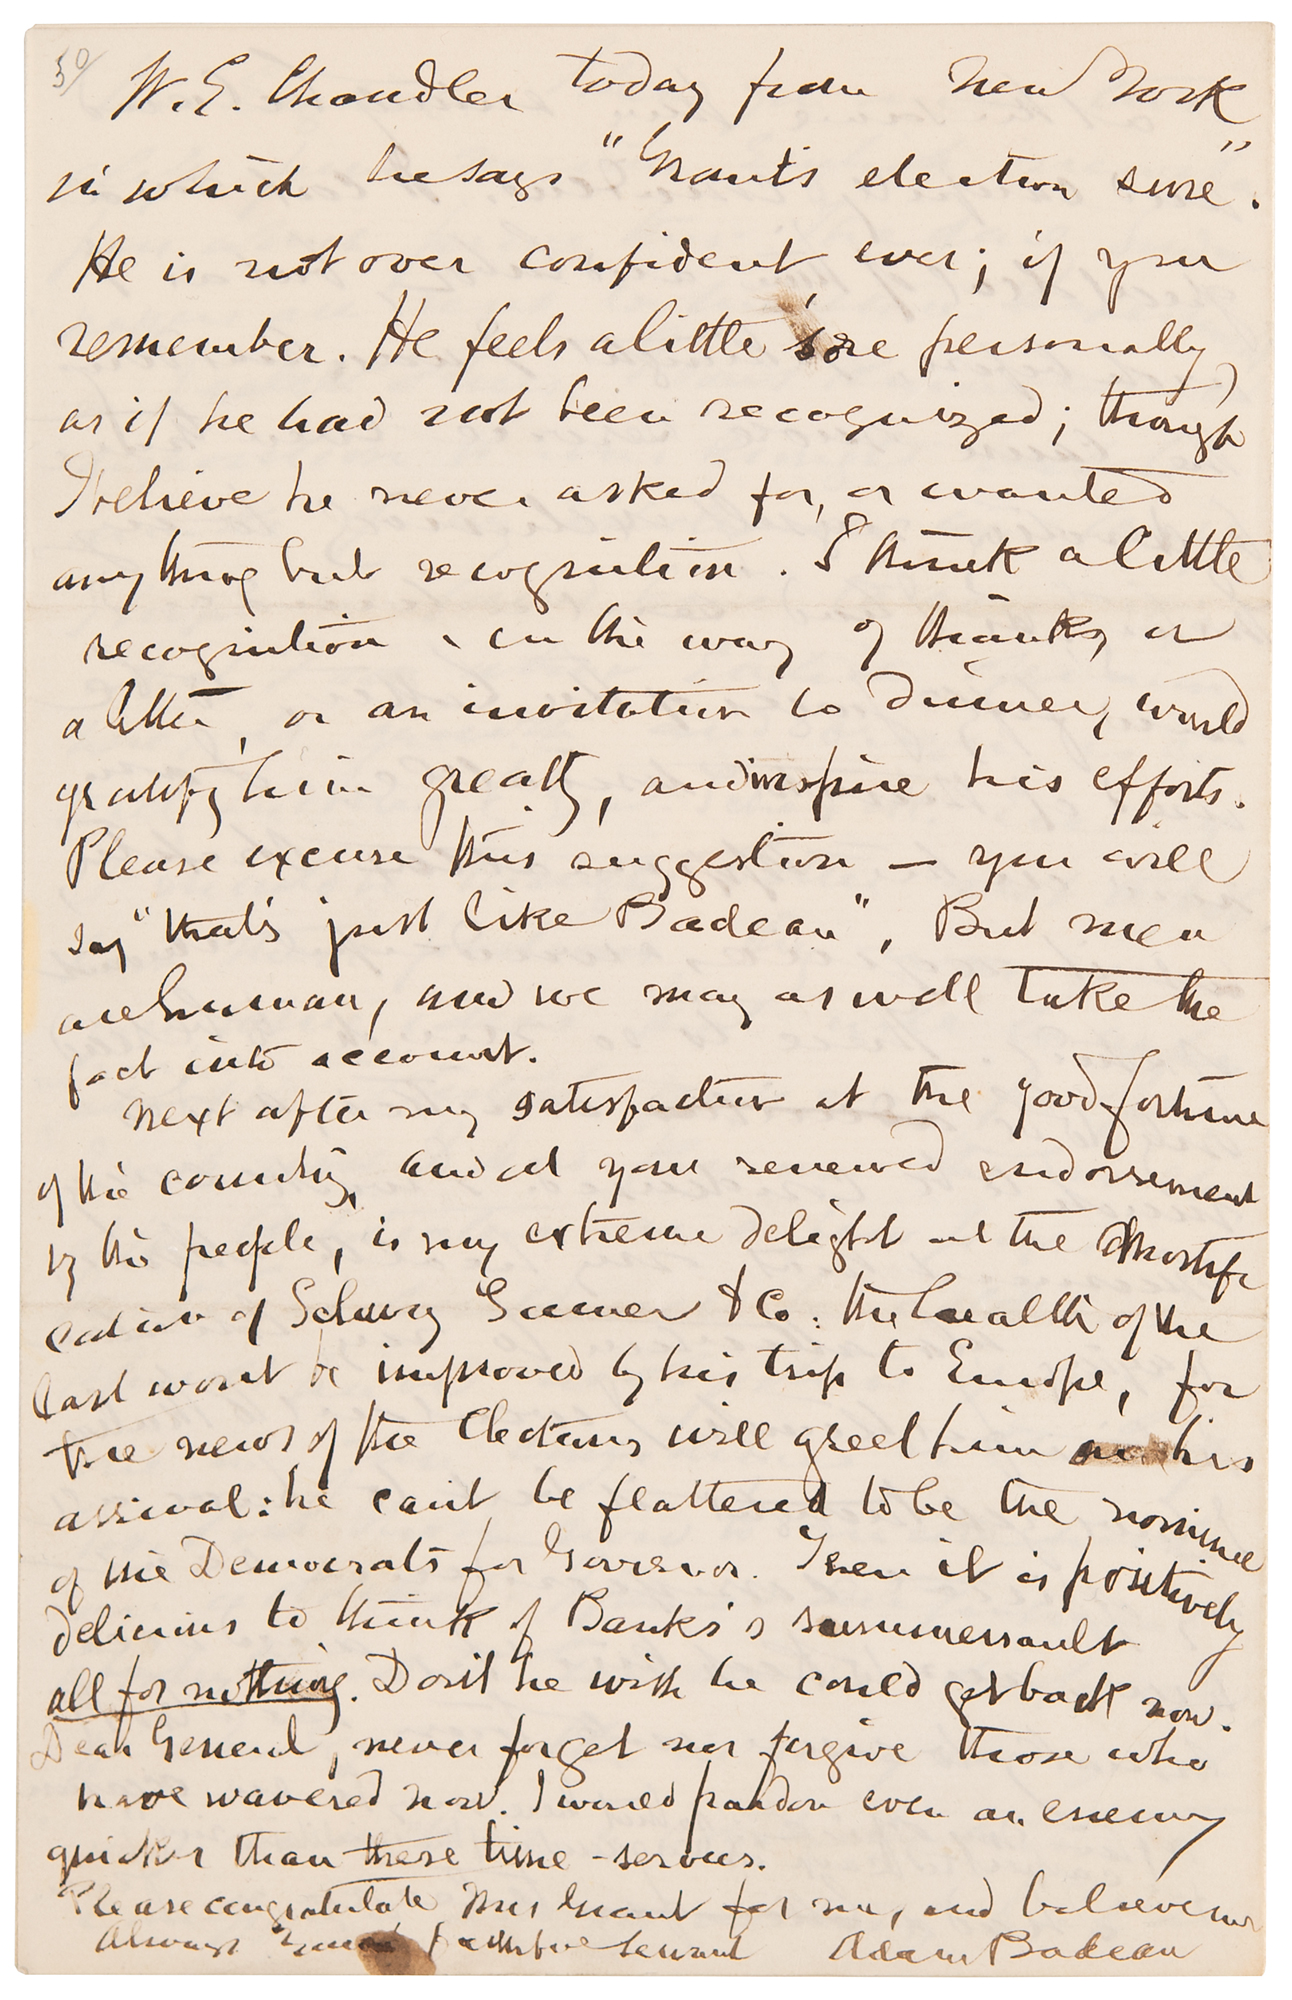 50/
W. E. Chandler today from New York
in which he says "Grant's election sure".
He is not over confident ever; if you
remember. He feels a little sore personally,
as if he had not been recognized; though
I believe he never asked for, or wanted
anything but recognition. I think a little
recognition, in the way of thanks, or
a letter, or an invitation to dinner, would
gratify him greatly, and inspire his efforts.
Please excuse this suggestion — you will
say "that's just like Badeau", But men
are human, and we may as well take the
fact into account.
Next after my satisfaction at the good fortune
of the country, and at your renewed endorsement
by the people, is my extreme delight at the mortifi
cation of Schurz Sumner & Co: the health of the
last wont be improved by his trip to Europe, for
the news of the Elections will greet him on his
arrival: he can't be flattered to be the nominee
of the Democrats for Governor. Then it is positively
delicious to think of Banks's summersault
all for nothing. Don't he wish he could get back now.
Dear General, never forget nor forgive those who
have wavered now. I would pardon even an enemy
quicker than these time-servers.
Please congratulate Mrs Grant for me, and believe me
Always Your faithful servant Adam Badeau